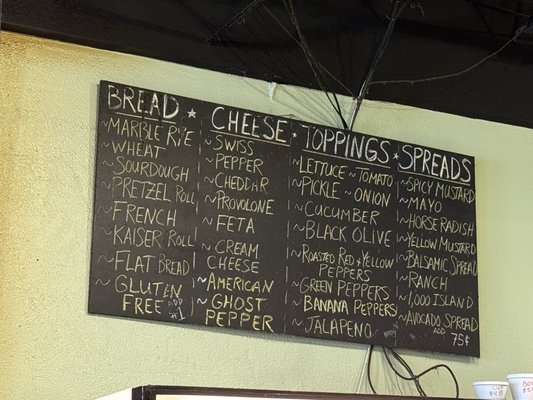 BREAD ★ CHEESE ★ TOPPINGS ★ SPREADS
~MARBLE RYE
~WHEAT
~SOURDOUGH
~PRETZEL ROLL
~FRENCH
~KAISER ROLL
~FLAT BREAD
~GLUTEN
FREE ADD
$1
~SWISS
~PEPPER
~CHEDDAR
~PROVOLONE
~FETA
~CREAM
CHEESE
~AMERICAN
~GHOST
PEPPER
~LETTUCE ~TOMATO
~PICKLE ~ONION
~CUCUMBER
~BLACK OLIVE
~ROASTED RED & YELLOW
PEPPERS
~GREEN PEPPERS
~BANANA PEPPERS
~JALAPENO
~SPICY MUSTARD
~MAYO
~HORSE RADISH
~YELLOW MUSTARD
~BALSAMIC SPREAD
~RANCH
~1,000 ISLAND
~AVOCADO SPREAD
ADD 75¢